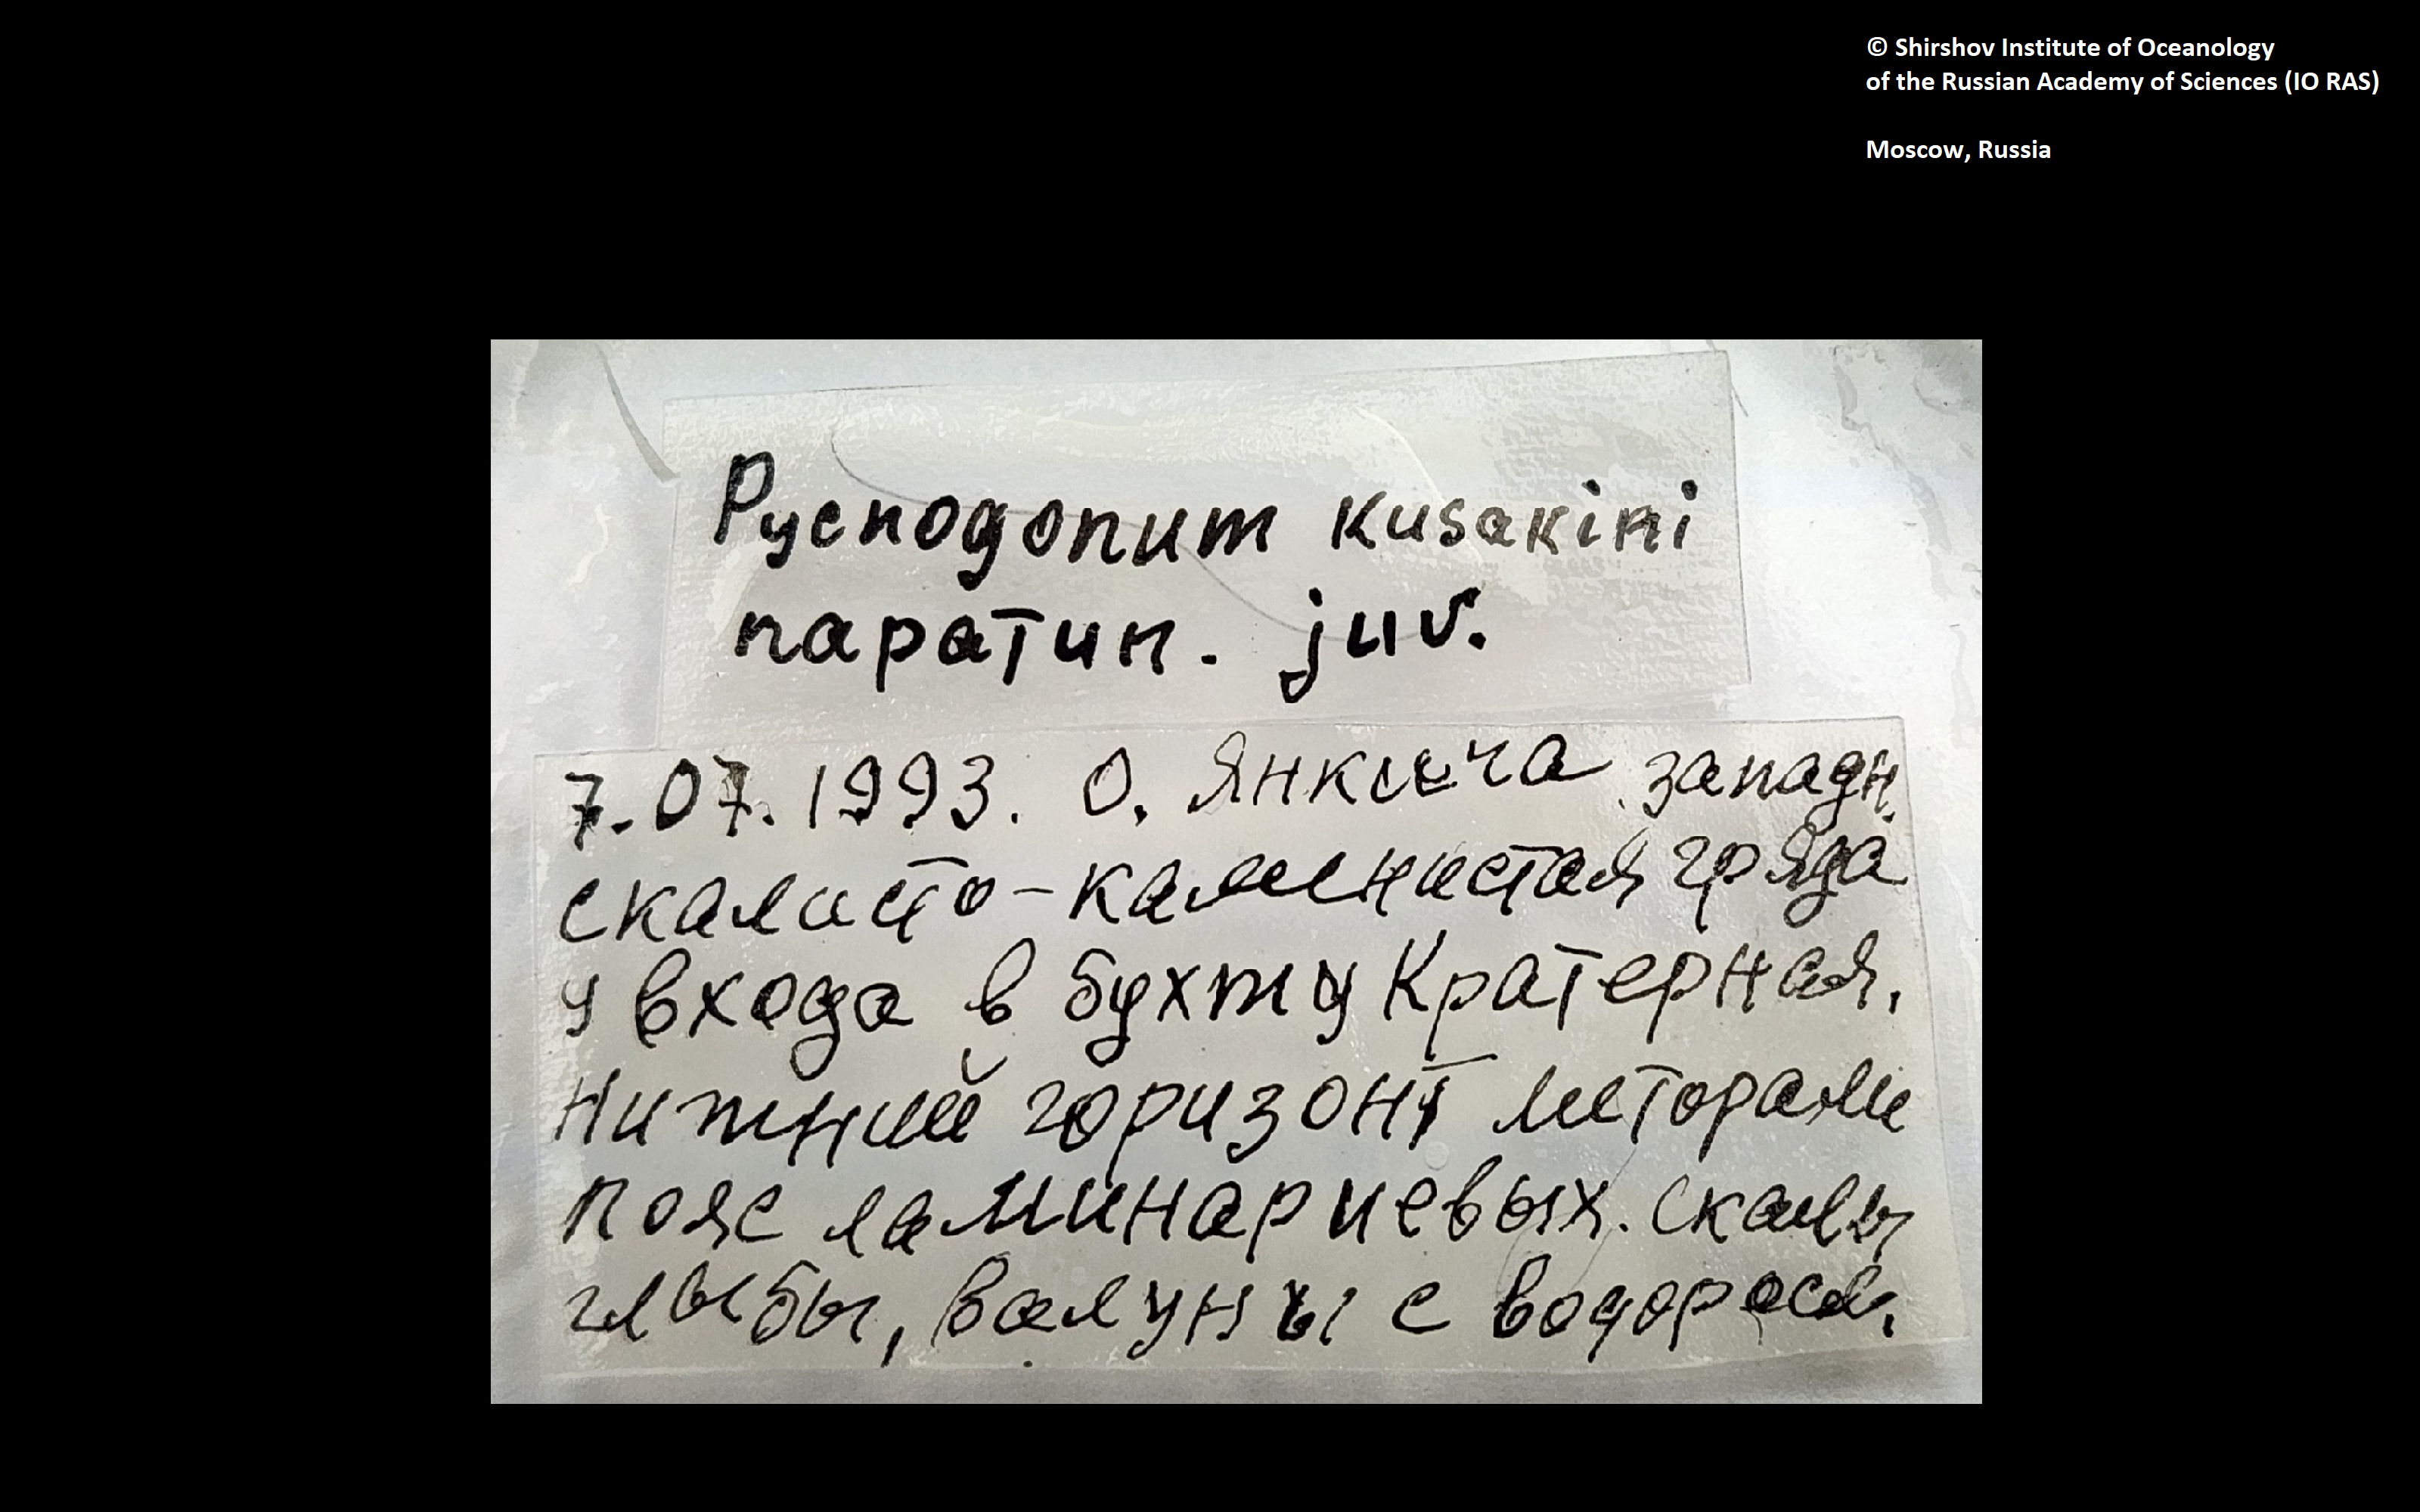 © Shirshov Institute of Oceanology
of the Russian Academy of Sciences (IO RAS)
Moscow, Russia
Pycnogonum kusakini
паратип. juv.
7.07.1993. О. Янкича западн.
скалисто-каменистая гряда
у входа в бухту Кратерная.
Нижний горизонт литорали
пояс ламинариевых. скалы
глыбы, валуны с водоросл.